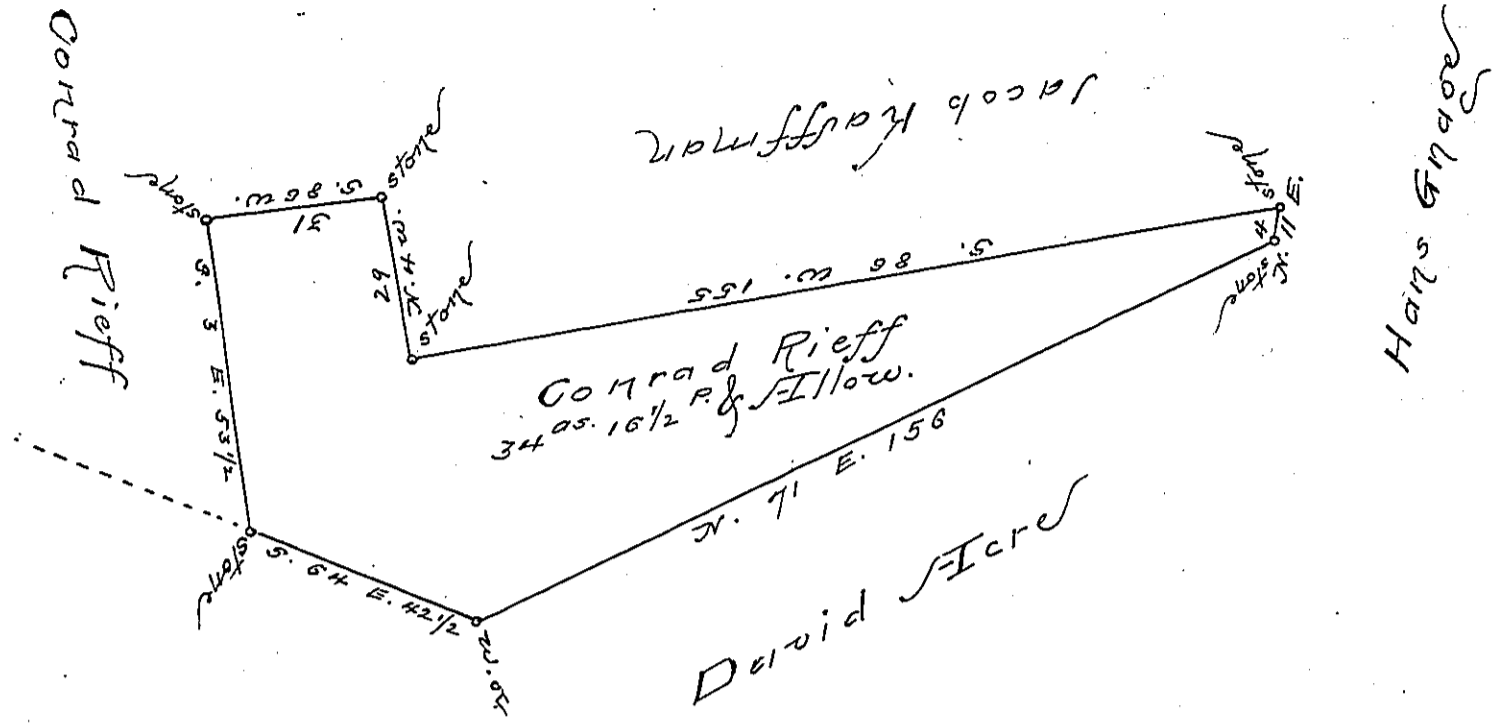 Conrad Rieff
Jacob Kauffman
Hans Gnage
stone
S. 86 W.
31
stone
N. 4 W.
29
stone
S. 86 W. 155
stone
N. 11 E.
4
stone
S. 3 E. 53 1/2
Conrad Rieff
34 as. 16 1/2 P. & Allow.
N. 71 E. 156
stone
S. 64 E. 42 1/2
w. o.
David Acre